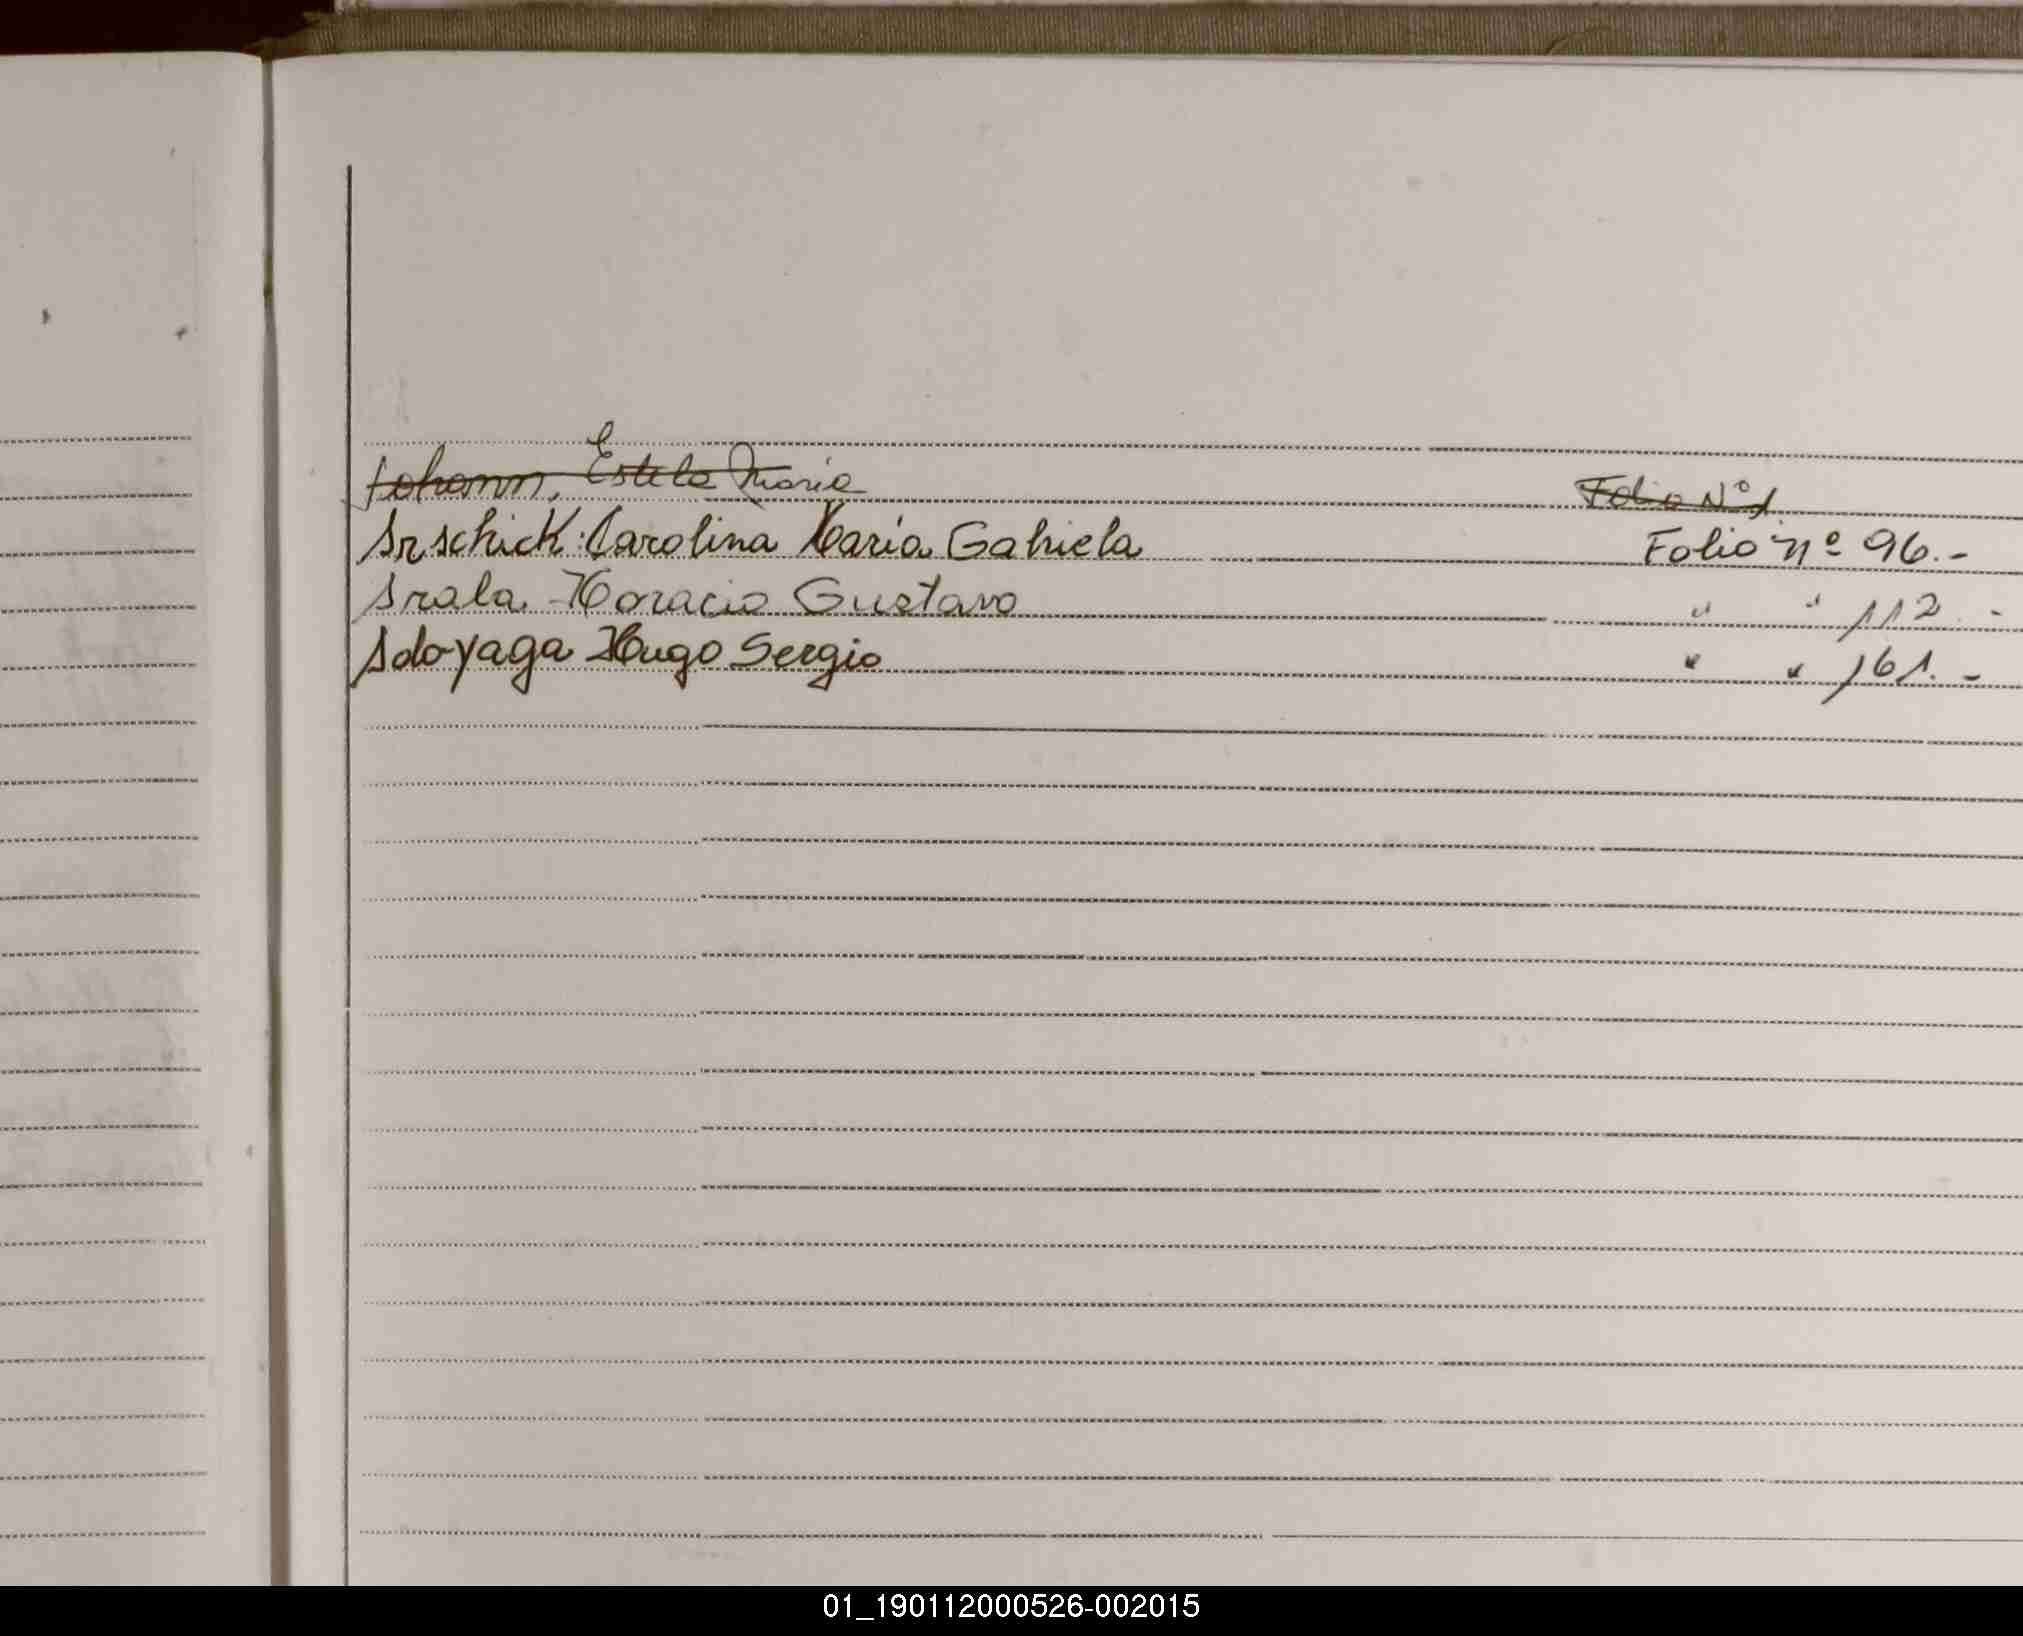 Johann, Estela Maria
Irschick Carolina María Gabriela
Irala Horacio Gustavo
Idoyaga Hugo Sergio
Folio Nº 1
Folio nº 96.-
" " 112.-
" " 161.-
01_190112000526-002015